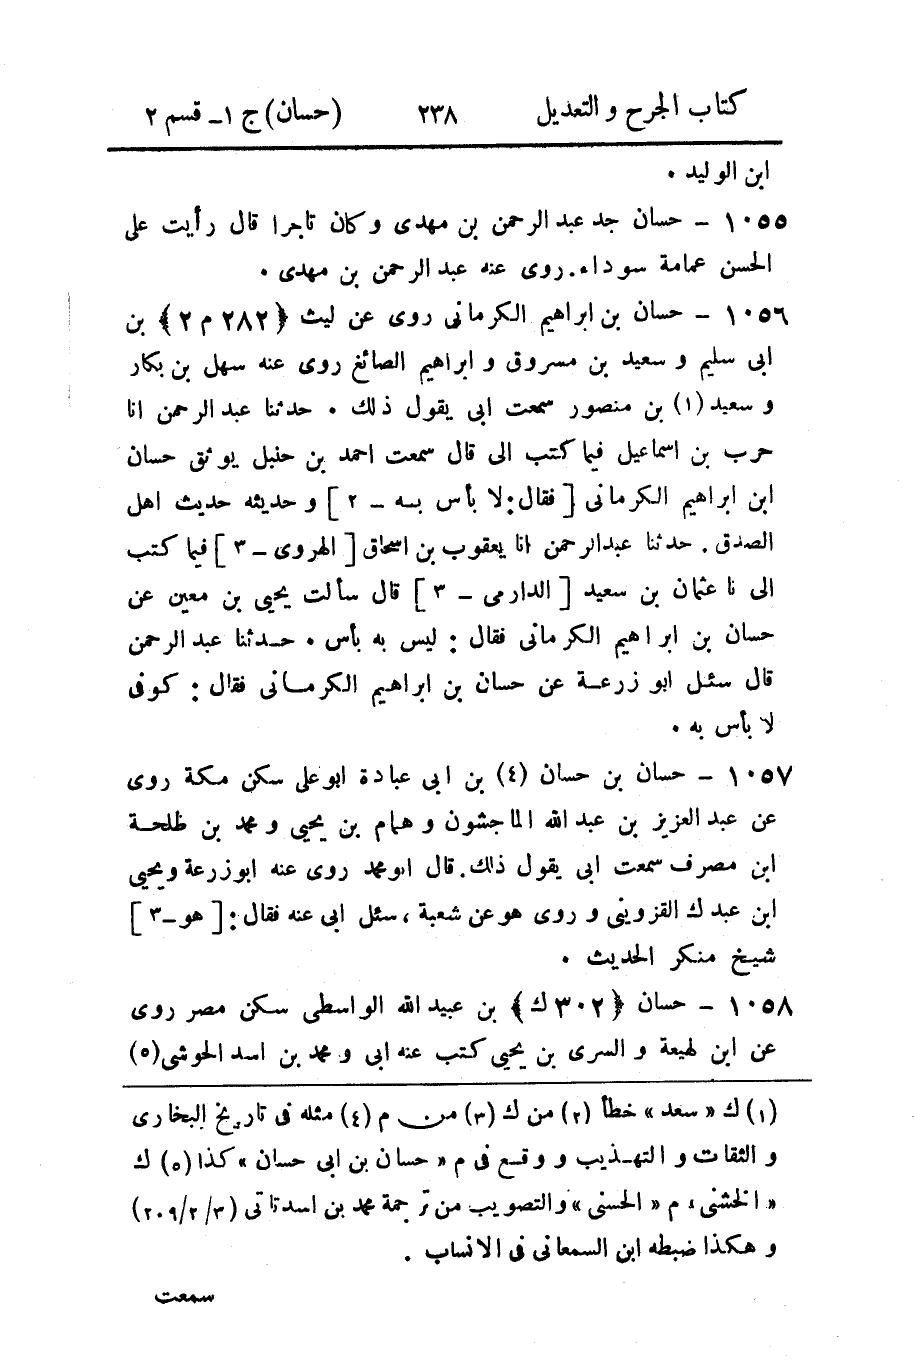 كتاب الجرح و التعديل ٢٣٨ (حسان) ج ١ - قسم ٢
ابن الوليد .
١٠٥٥ - حسان جد عبد الرحمن بن مهدى وكان تاجرا قال رأيت على
الحسن عمامة سوداء. روى عنه عبد الرحمن بن مهدى .
١٠٥٦ - حسان بن ابراهيم الكرمانى روى عن ليث ﴿٢٨٢ م ٢﴾ بن
ابى سليم و سعيد بن مسروق و ابراهيم الصائغ روى عنه سهل بن بكار
و سعيد (١) بن منصور سمعت ابى يقول ذلك . حدثنا عبد الرحمن انا
حرب بن اسماعيل فيما كتب الى قال سمعت احمد بن حنبل يوثق حسان
ابن ابراهيم الكرمانى [ فقال: لا بأس به - ٢ ] و حديثه حديث اهل
الصدق . حدثنا عبدالرحمن انا يعقوب بن اسحاق [ الهروى - ٣ ] فيما كتب
الى نا عثمان بن سعيد [ الدارمى - ٣ ] قال سألت يحيى بن معين عن
حسان بن ابراهيم الكرمانى فقال : ليس به بأس . حدثنا عبد الرحمن
قال سئل ابو زرعة عن حسان بن ابراهيم الكرمانى فقال : كوفى
لا بأس به .
١٠٥٧ - حسان بن حسان (٤) بن ابى عبادة ابو على سكن مكة روى
عن عبد العزيز بن عبد الله الماجشون و همام بن يحيى و محمد بن طلحة
ابن مصرف سمعت ابى يقول ذلك. قال ابو محمد روى عنه ابوزرعة ويحيى
ابن عبدك القزوينى و روى هو عن شعبة ، سئل ابى عنه فقال : [ هو - ٣ ]
شيخ منكر الحديث .
١٠٥٨ - حسان ﴿٣٠٢ ك﴾ بن عبيد الله الواسطى سكن مصر روى
عن ابن لهيعة و السرى بن يحيى كتب عنه ابى و محمد بن اسد الخوشى (٥)
(١) ك « سعد » خطأ (٢) من ك (٣) من م (٤) مثله فى تاريخ البخارى
و الثقات و التهذيب و وقع فى م « حسان بن ابى حسان » كذا (٥) ك
« الخشنى ، م « الحسنى » والتصويب من ترجمة محمد بن اسد تاتى (٢٠٩/٢/٣)
و هكذا ضبطه ابن السمعانى فى الانساب .
سمعت